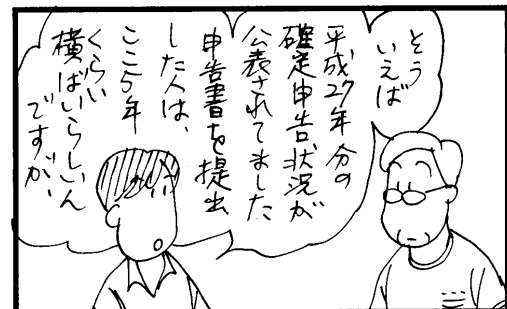 そう
いえば
平成27年分の
確定申告状況が
公表されてました
申告書を提出
した人は、
ここ5年
くらい
横ばいらしいん
ですが、